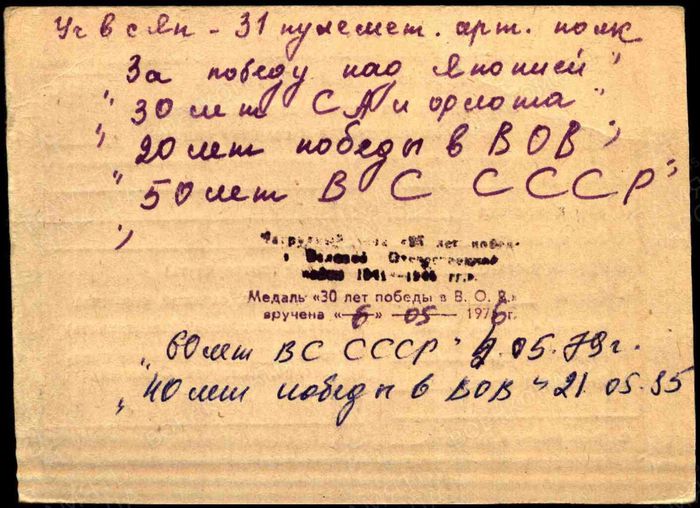 Уч в с яп - 31 пулемет. арт. полк
За победу над Японией"
"30 лет СА и флота"
"20 лет победы в ВОВ"
"50 лет ВС СССР"
"
Нагрудный знак «25 лет победы
в Великой Отечественной
войне 1941—1945 гг.»
Медаль «30 лет победы в В. О. В.»
вручена «6» 05 1976 г.
"60 лет ВС СССР" 2.05.79 г.
"40 лет победы в ВОВ" 21.05.85